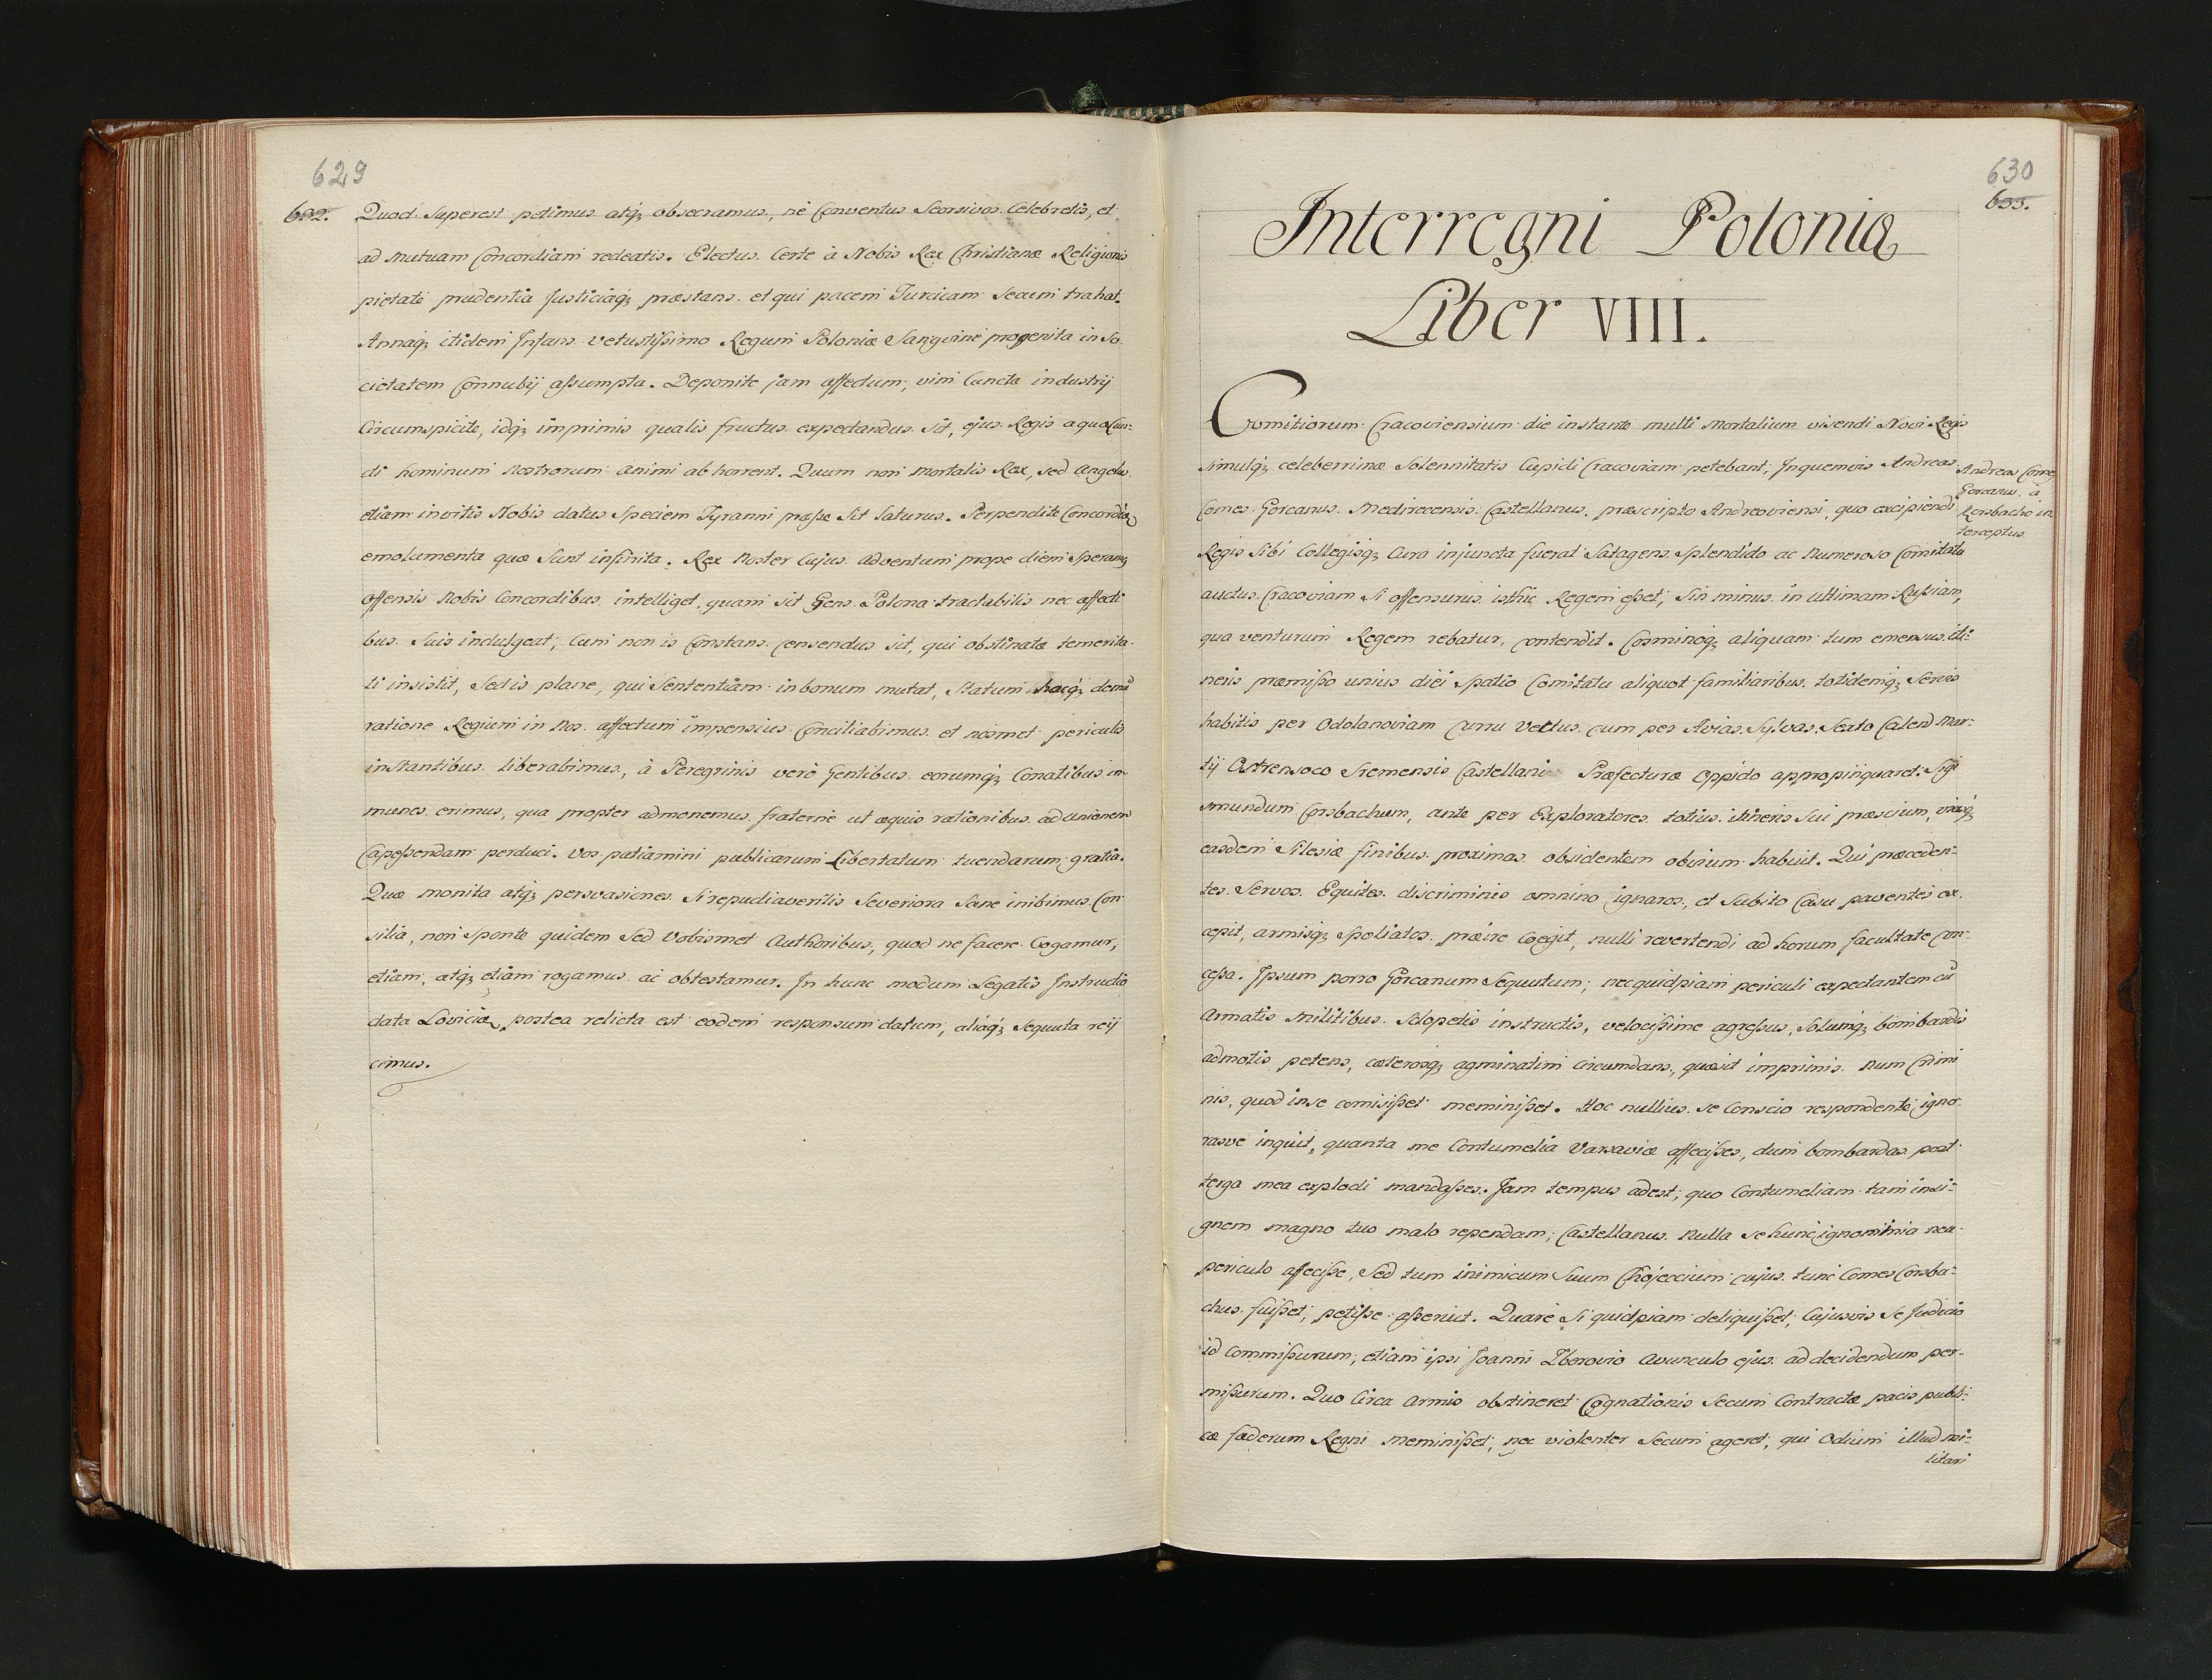 629
632.
Quod Superest petimus atq; obsecramus, ne Conventus Seorsivos Celebretis, et
ad Mutuam Concordiam redeatis. Electus Certe à Nobis Rex Christianæ Religionis
pietate prudentia Justiciaq; præstans et qui pacem Turcicam Secum trahat.
Annaq; itidem Infans Vetustißimo Regum Poloniæ Sangvine progenita in So
cietatem Connubij aßumpta. Deponite jam affectum, vim Cuncta industrij
Circumspicite, idq; imprimis qualis fructus expectandus Sit, ejus Regis a quo Cun=
di hominum Nostrorum animi abhorrent. Quum non Mortalis Rex, sed Angelus
etiam invitis Nobis datus Speciem Tyranni præ se Sit laturus. Perpendite Concordiæ
emolumenta quæ Sunt infinita. Rex Noster Cujus adventum prope diem Speramq
offensis Nobis Concordibus intelliget, quam sit Gens Polona tractabilis nec affecti
bus Suis indulgeat; Cum non is Constans Censendus sit, qui obstinatæ temerita
ti insistit, Sed is plane, qui Sententiam in bonum mutat, Statum hacq; demū
ratione Regium in Nos affectum impensius Conciliabimus et nosmet periculis
instantibus liberabimus, à Peregrinis verò Gentibus eorumq; Conatibus im
munes erimus, qua propter admonemus fraterne ut æquis rationibus ad unionem
Capeßendam perduci Vos patiamini publicarum Libertatum tuendarum gratia.
Quæ monita atq; persvasiones Si repudiaveritis Severiora Sane inibimus Con
silia, non Sponte quidem Sed Vobismet Authoribus, quod ne facere Cogamur,
etiam, atq; etiam rogamus ac obtestamur. In hunc modum Legatis Instructio
data Loviciæ, postea relicta est eodem responsum datum, aliaq; Sequuta reij
cimus.
630
633.
Interregni Poloniæ
Liber VIII.
Comitiorum Cracoviensium die instante multi Mortalium visendi Novi Regis
simulq; celeberrimæ Solennitatis Cupidi Cracoviam petebant, Inquemvis Andreas
Comes Gorcanus Medirecensis Castellanus, præscripto Andreoviensi, quo excipiendi
Regis Sibi Collegisq; Cura injuncta fuerat Satagens Splendido ac Numeroso Comitatu
auctus Cracoviam Si offensurus isthic Regem eßet; Sin minus in ultimam Rußiam,
qua venturum Regem rebatur, contendit. Cosminoq; aliquam tum emensus iti=
neris præmißo unius diei Spatio Comitatu aliquot familiaribus totidemq; Servis
habitis per Odolanoviam Curru Vectus cum per Avias Sylvas Sexto Calend Mar=
tij Ostrensoco Sremensis Castellani Præfecturæ Oppido appropinquaret: Sigi
smundum Corsbachum, ante per Exploratores totius itineris Sui præscium, viasq;
easdem Silesiæ finibus proximas obsidentem obvium habuit. Qui præceden=
tes Servos Equites discriminis omnino ignaros, et Subito Casu paventes ex
cepit, armisq; Spoliatos præire Coegit, nulli revertendi ad horum facultate con=
ceßa. Ipsum porro Gorcanum Sequutum, nec quidpiam periculi expectantem cū
Armatis Militibus Sclopetis instructis, velocißime agreßus, Solumq; bombardis
admotis petens, cæterosq; agminatim Circumdans, quæsit imprimis num Crimi
nis, quod in se comisißet meminißet. Hoc nullius se Conscio respondente, igno
rasve inquit, quanta me Contumelia Varsaviæ affecißes, dum bombardas post
terga mea explodi mandaßes. Jam tempus adest, quo Contumeliam tam insi=
gnem magno tuo malo rependam; Castellanus Nulla se hunc ignominia nec
periculo affeciße, Sed tum inimicum Suum Chojeccium cujus tunc Comes Corsba=
chus fuißet, petiße aßeruit. Quare Si quidpiam deliquißet, Cujusvis se Judicio
id Commißurum, etiam ipsi Joanni Zborovio Avunculo ejus ad decidendum per=
mißurum. Quo Circa Armis obstineret Cognationis Secum Contractæ pacis publi=
cæ fæderum Regni Meminißet, nec violenter Secum ageret, qui Odium illud mi=
litari
Andreas Comes
Gorcanus à
Korsbacho in
terceptus